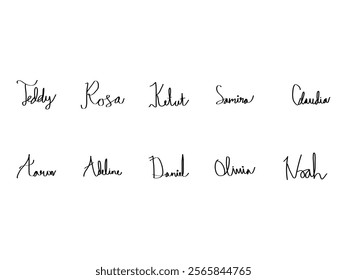 Teddy Rosa Kelut Samira Claudia
Aaron Adeline Daniel Olivia Noah
Adobe Stock | #2565844765